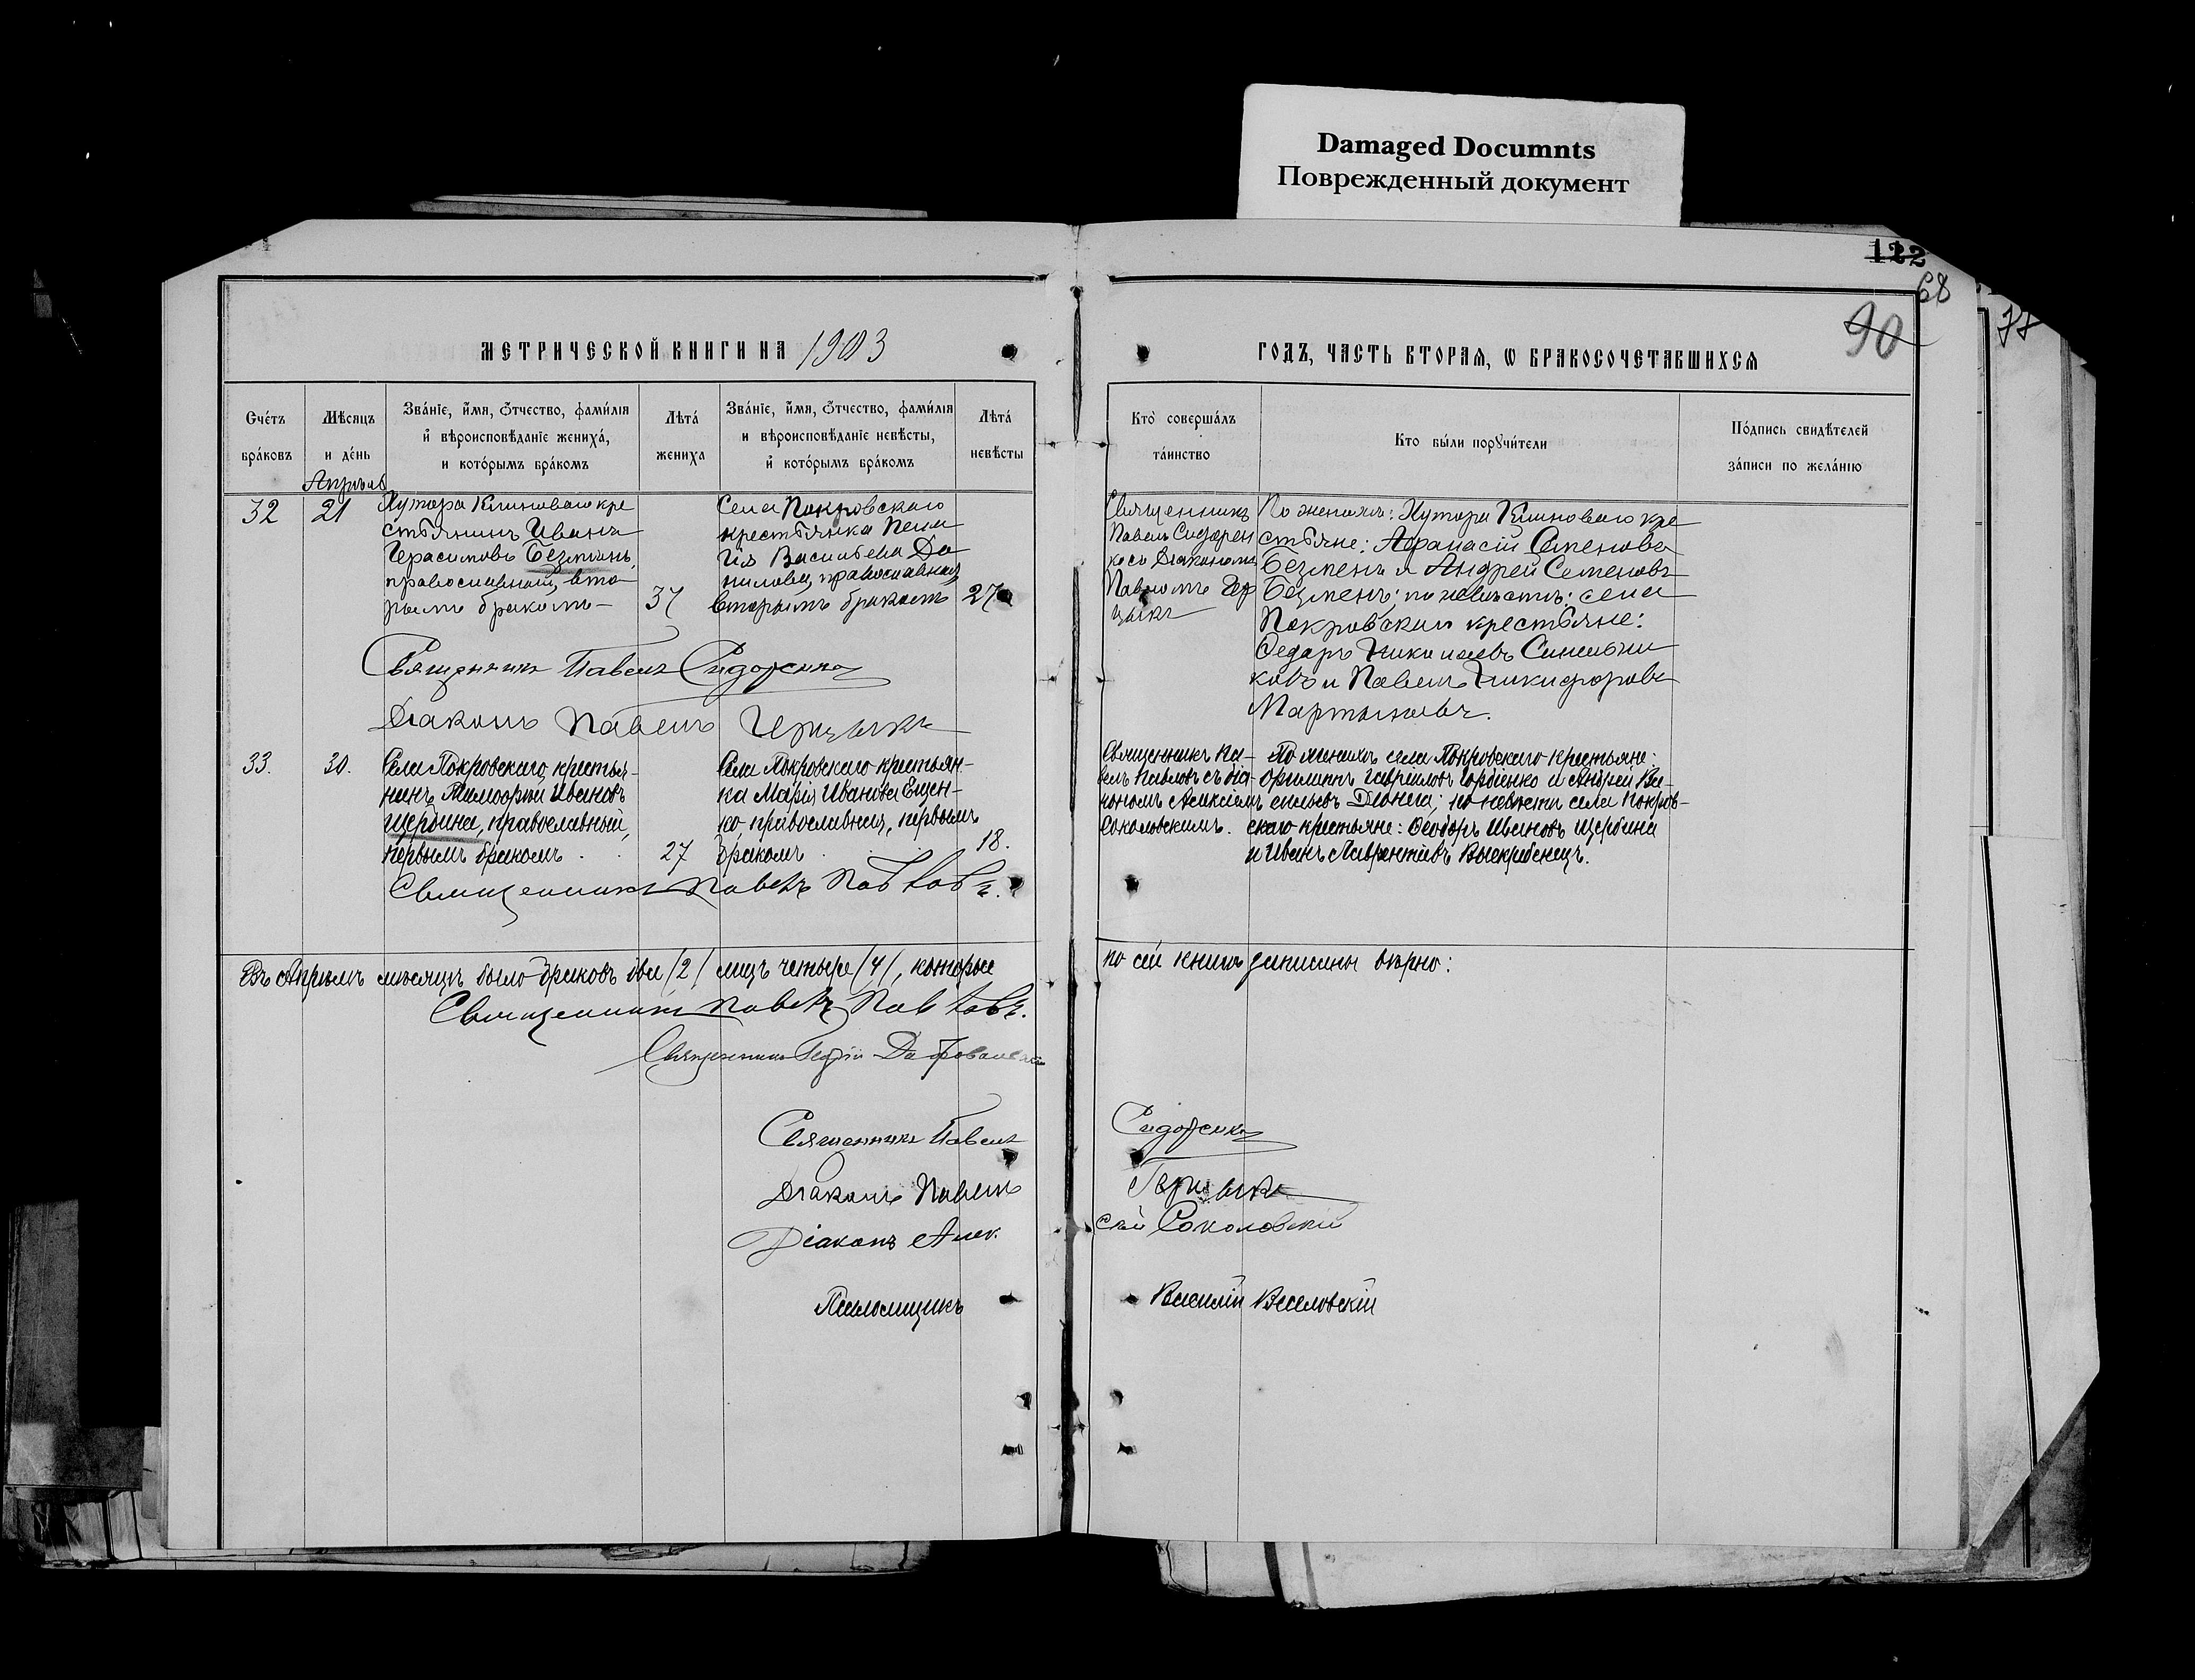 Damaged Documnts
Поврежденный документ
122
68
90
МЕТРИЧЕСКОЙ КНИГИ НА 1903
ГОДЪ, ЧАСТЬ ВТОРАЯ, Ѡ БРАКОСОЧЕТАВШИХСЯ
Счетъ браковъ
Мѣсяцъ и день
Званіе, имя, отчество, фамилія и вѣроисповѣданіе жениха, и которымъ бракомъ
Лѣта жениха
Званіе, имя, отчество, фамилія и вѣроисповѣданіе невѣсты, и которымъ бракомъ
Лѣта невѣсты
Кто совершалъ таинство
Кто были поручители
Подпись свидѣтелей записи по желанію
Апрѣль
32
21
Хутора Клиноваго кре
стьянинъ Иванъ
Герасимовъ Безменъ,
православный, вто
рымъ бракомъ
37
Села Покровскаго
крестьянка Пела
гія Васильева Да
нилова, православная,
вторымъ бракомъ
27
Священникъ
Павелъ Сидорен
ко съ Діакономъ
Павломъ Гер
цыкъ
По женихѣ: Хутора Клиноваго кре
стьяне: Афанасій Семеновъ
Безменъ и Андрей Семеновъ
Безменъ; по невѣстѣ: села
Покровскаго крестьяне:
Федоръ Николаевъ Синельни
ковъ и Павелъ Никифоровъ
Мартыновъ.
Священникъ Павелъ Сидоренко
Діаконъ Павелъ Герцыкъ
33.
30.
Села Покровскаго крестья-
нинъ Тимофей Ивановъ
Щербина, православный,
первымъ бракомъ
27
Села Покровскаго крестьян-
ка Марія Иванова Ещен-
ко, православная, первымъ
бракомъ
18.
Священникъ Па-
велъ Павловъ съ діа-
кономъ Алексіемъ
Соколовскимъ.
По женихѣ села Покровскаго крестьяне:
Филиппъ Гавриловъ Горбенко и Андрей Ва-
сильевъ Дронга; по невѣстѣ села Покров-
скаго крестьяне: Ѳеодоръ Ивановъ Щербина
и Иванъ Лаврентіевъ Выскребенецъ.
Священникъ Павелъ Павловъ.
Въ Апрѣлѣ мѣсяцѣ было браковъ два /2/ лицъ четыре /4/, которые
по сей книгѣ записаны вѣрно:
Священникъ Павелъ Павловъ.
Священникъ
Священникъ Павелъ Сидоренко
Діаконъ Павелъ Герцыкъ
Діаконъ Алексій Соколовскій
Псаломщикъ Василій Веселовскій